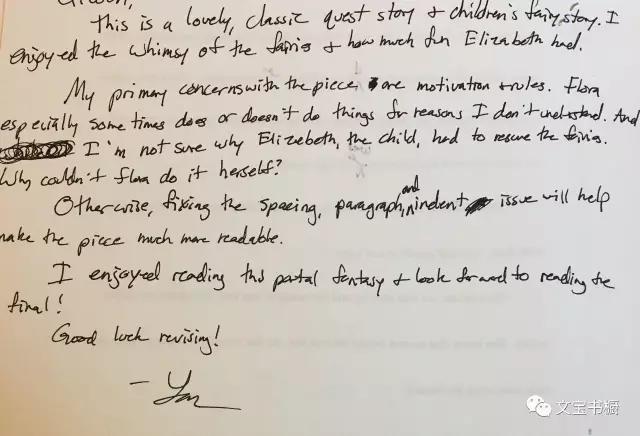 This is a lovely, classic quest story & children's fairy story. I
enjoyed the whimsy of the fairies & how much fun Elizabeth had.
My primary concerns with the piece are motivation & rules. Flora
especially some times does or doesn't do things for reasons I don't understand. And
I'm not sure why Elizabeth, the child, had to rescue the fairies.
Why couldn't Flora do it herself?
Otherwise, fixing the spacing, paragraph, and indent issue will help
make the piece much more readable.
I enjoyed reading this portal fantasy & look forward to reading the
final!
Good luck revising!
文宝书橱